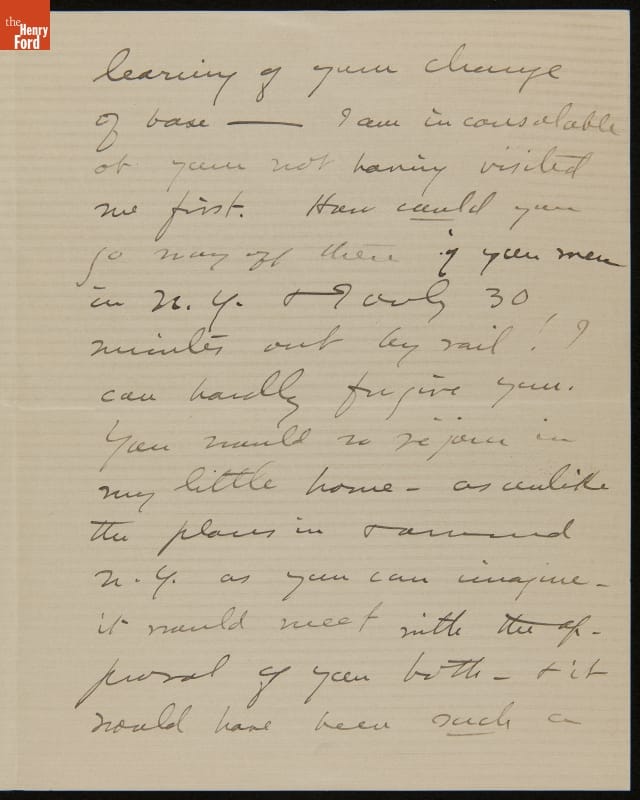 the
Henry
Ford
learning of your change
of base — I am inconsolable
at your not having visited
me first. How could you
go way off there if you were
in N.Y. & I only 30
minutes out by rail! I
can hardly forgive you.
You would so rejoice in
my little home - as unlike
the places in & around
N.Y. as you can imagine -
it would meet with the ap-
proval of you both - & it
would have been such a